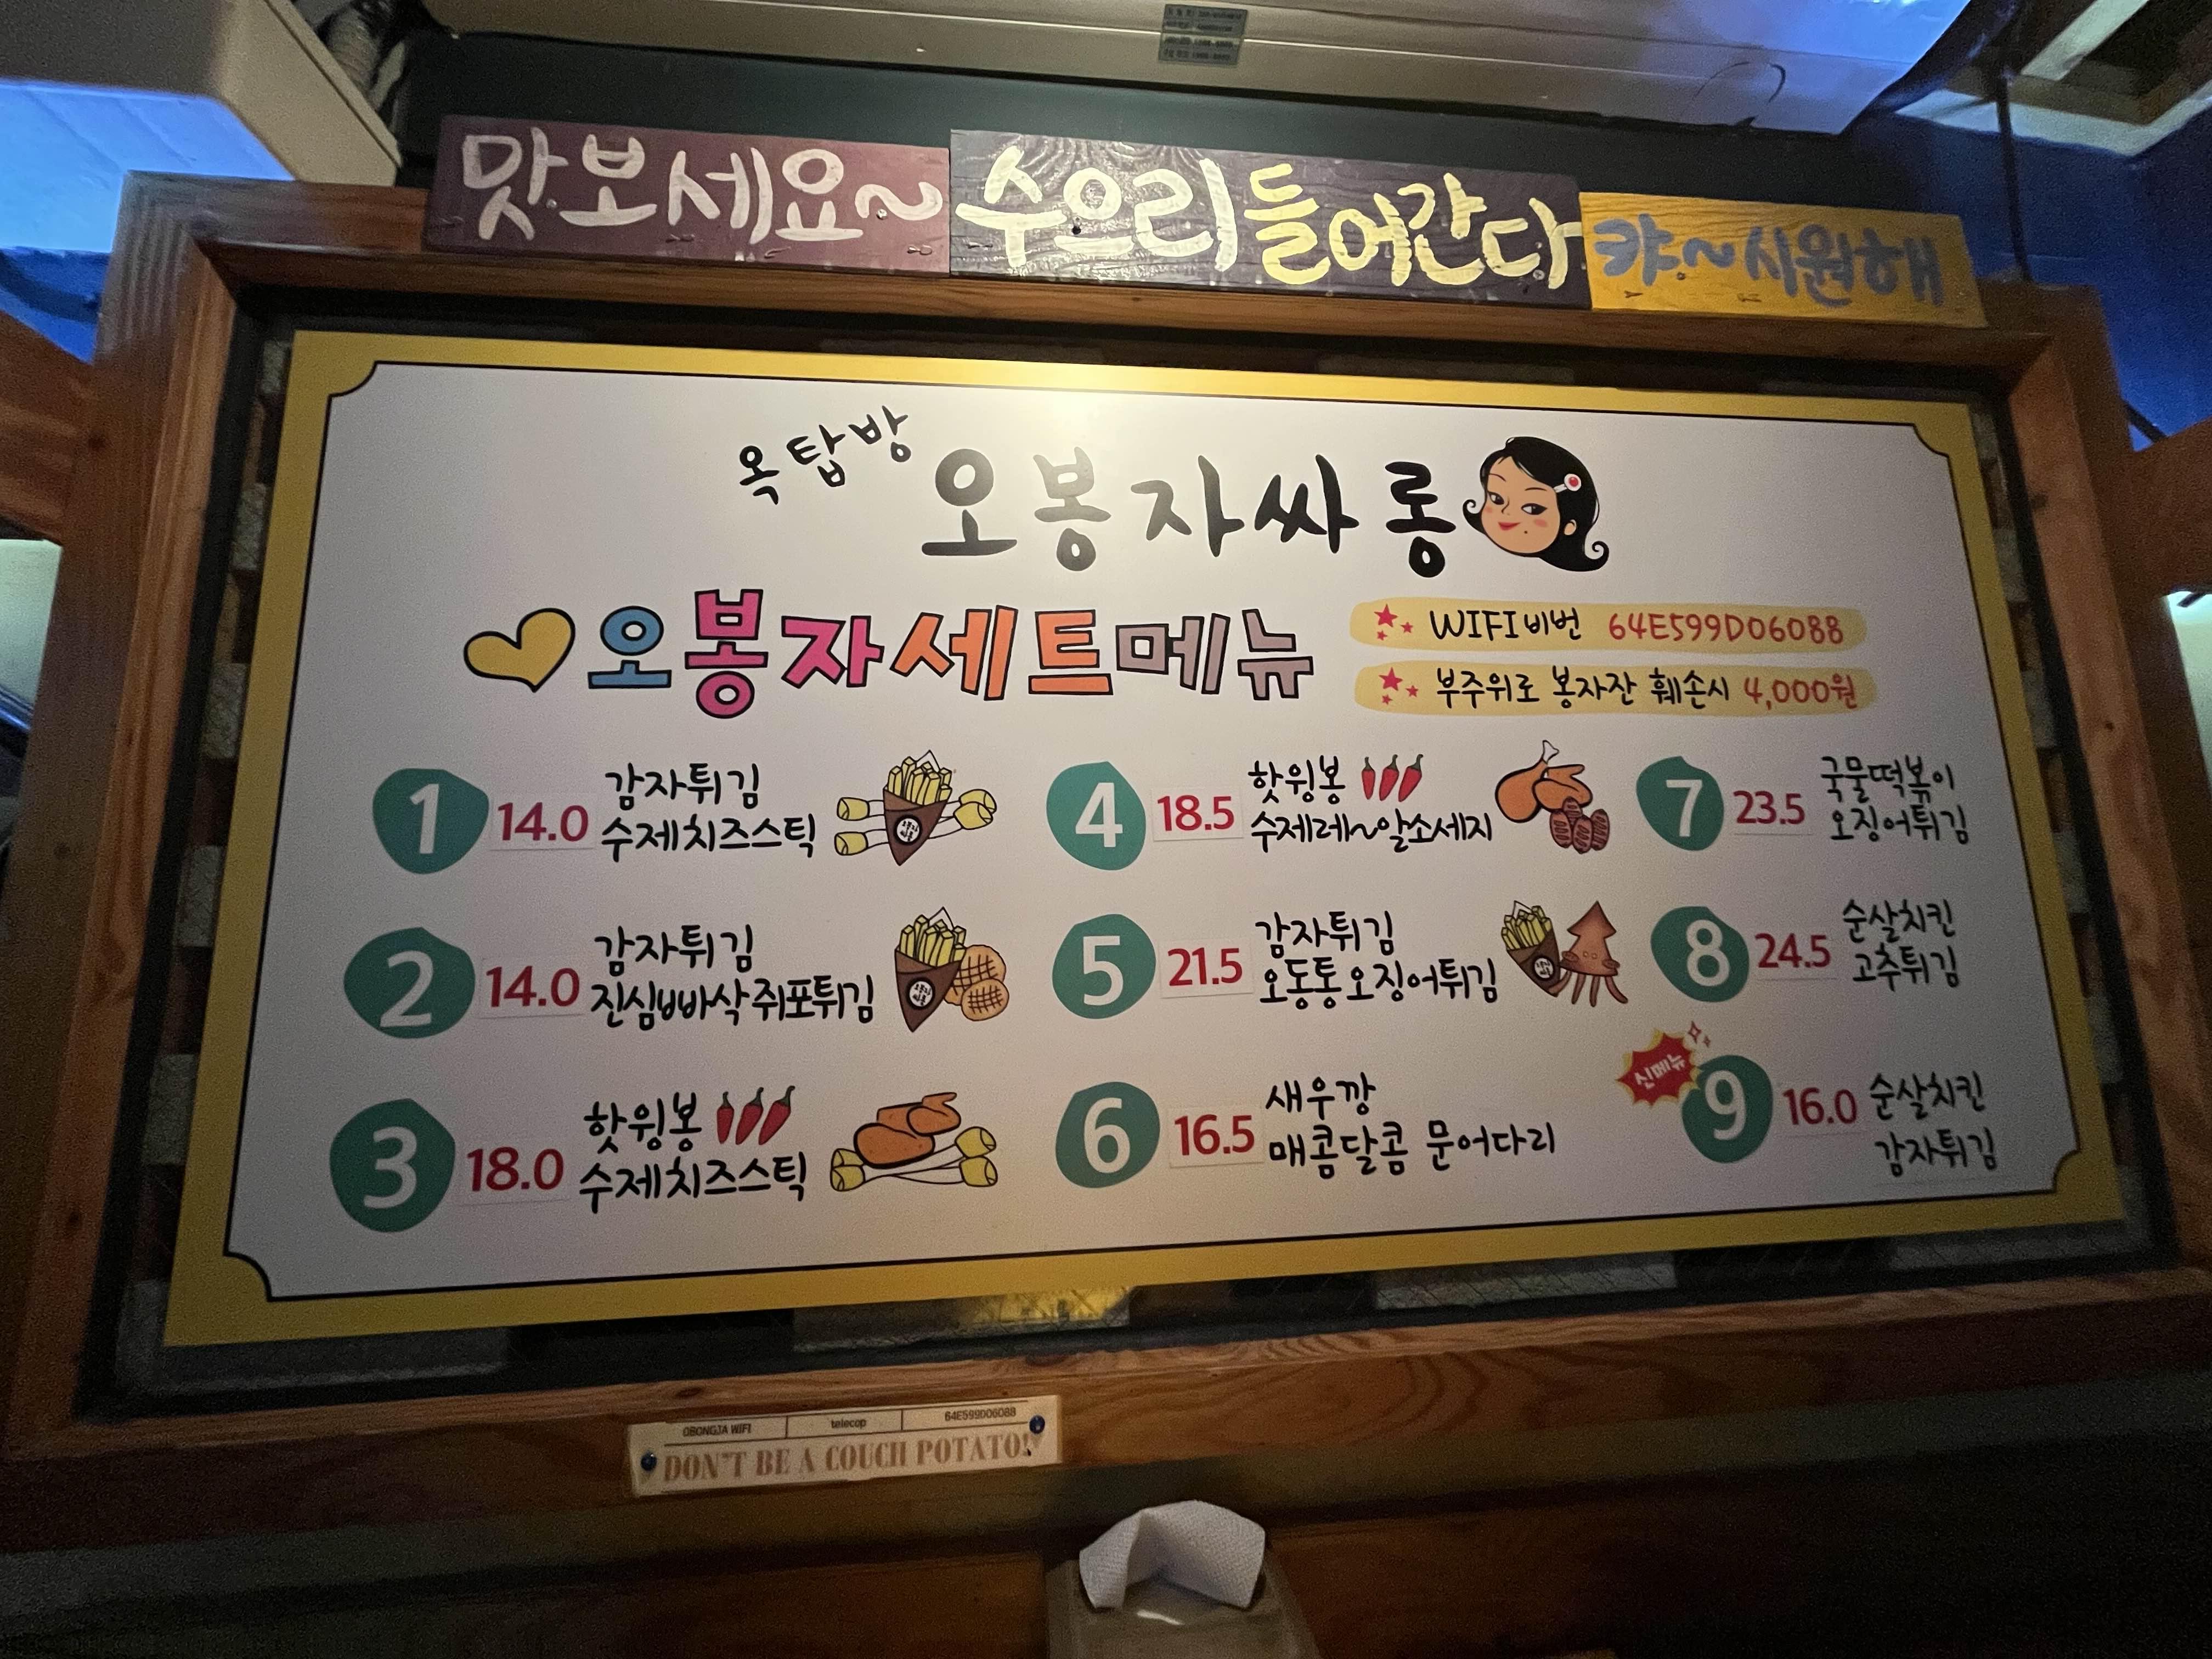 맛보세요~
수으리들어간다
캬~시원해
옥탑방
오봉자싸롱
오봉자세트메뉴
WIFI비번 64E599D06088
부주위로 봉자잔 훼손시 4,000원
1 14.0 감자튀김
수제치즈스틱
2 14.0 감자튀김
진심빠삭쥐포튀김
3 18.0 핫윙봉
수제치즈스틱
4 18.5 핫윙봉
수제레~알소세지
5 21.5 감자튀김
오동통오징어튀김
6 16.5 새우깡
매콤달콤 문어다리
7 23.5 국물떡볶이
오징어튀김
8 24.5 순살치킨
고추튀김
신메뉴
9 16.0 순살치킨
감자튀김
OBONGJA WIFI telecop 64E599D06088
DON'T BE A COUCH POTATO!